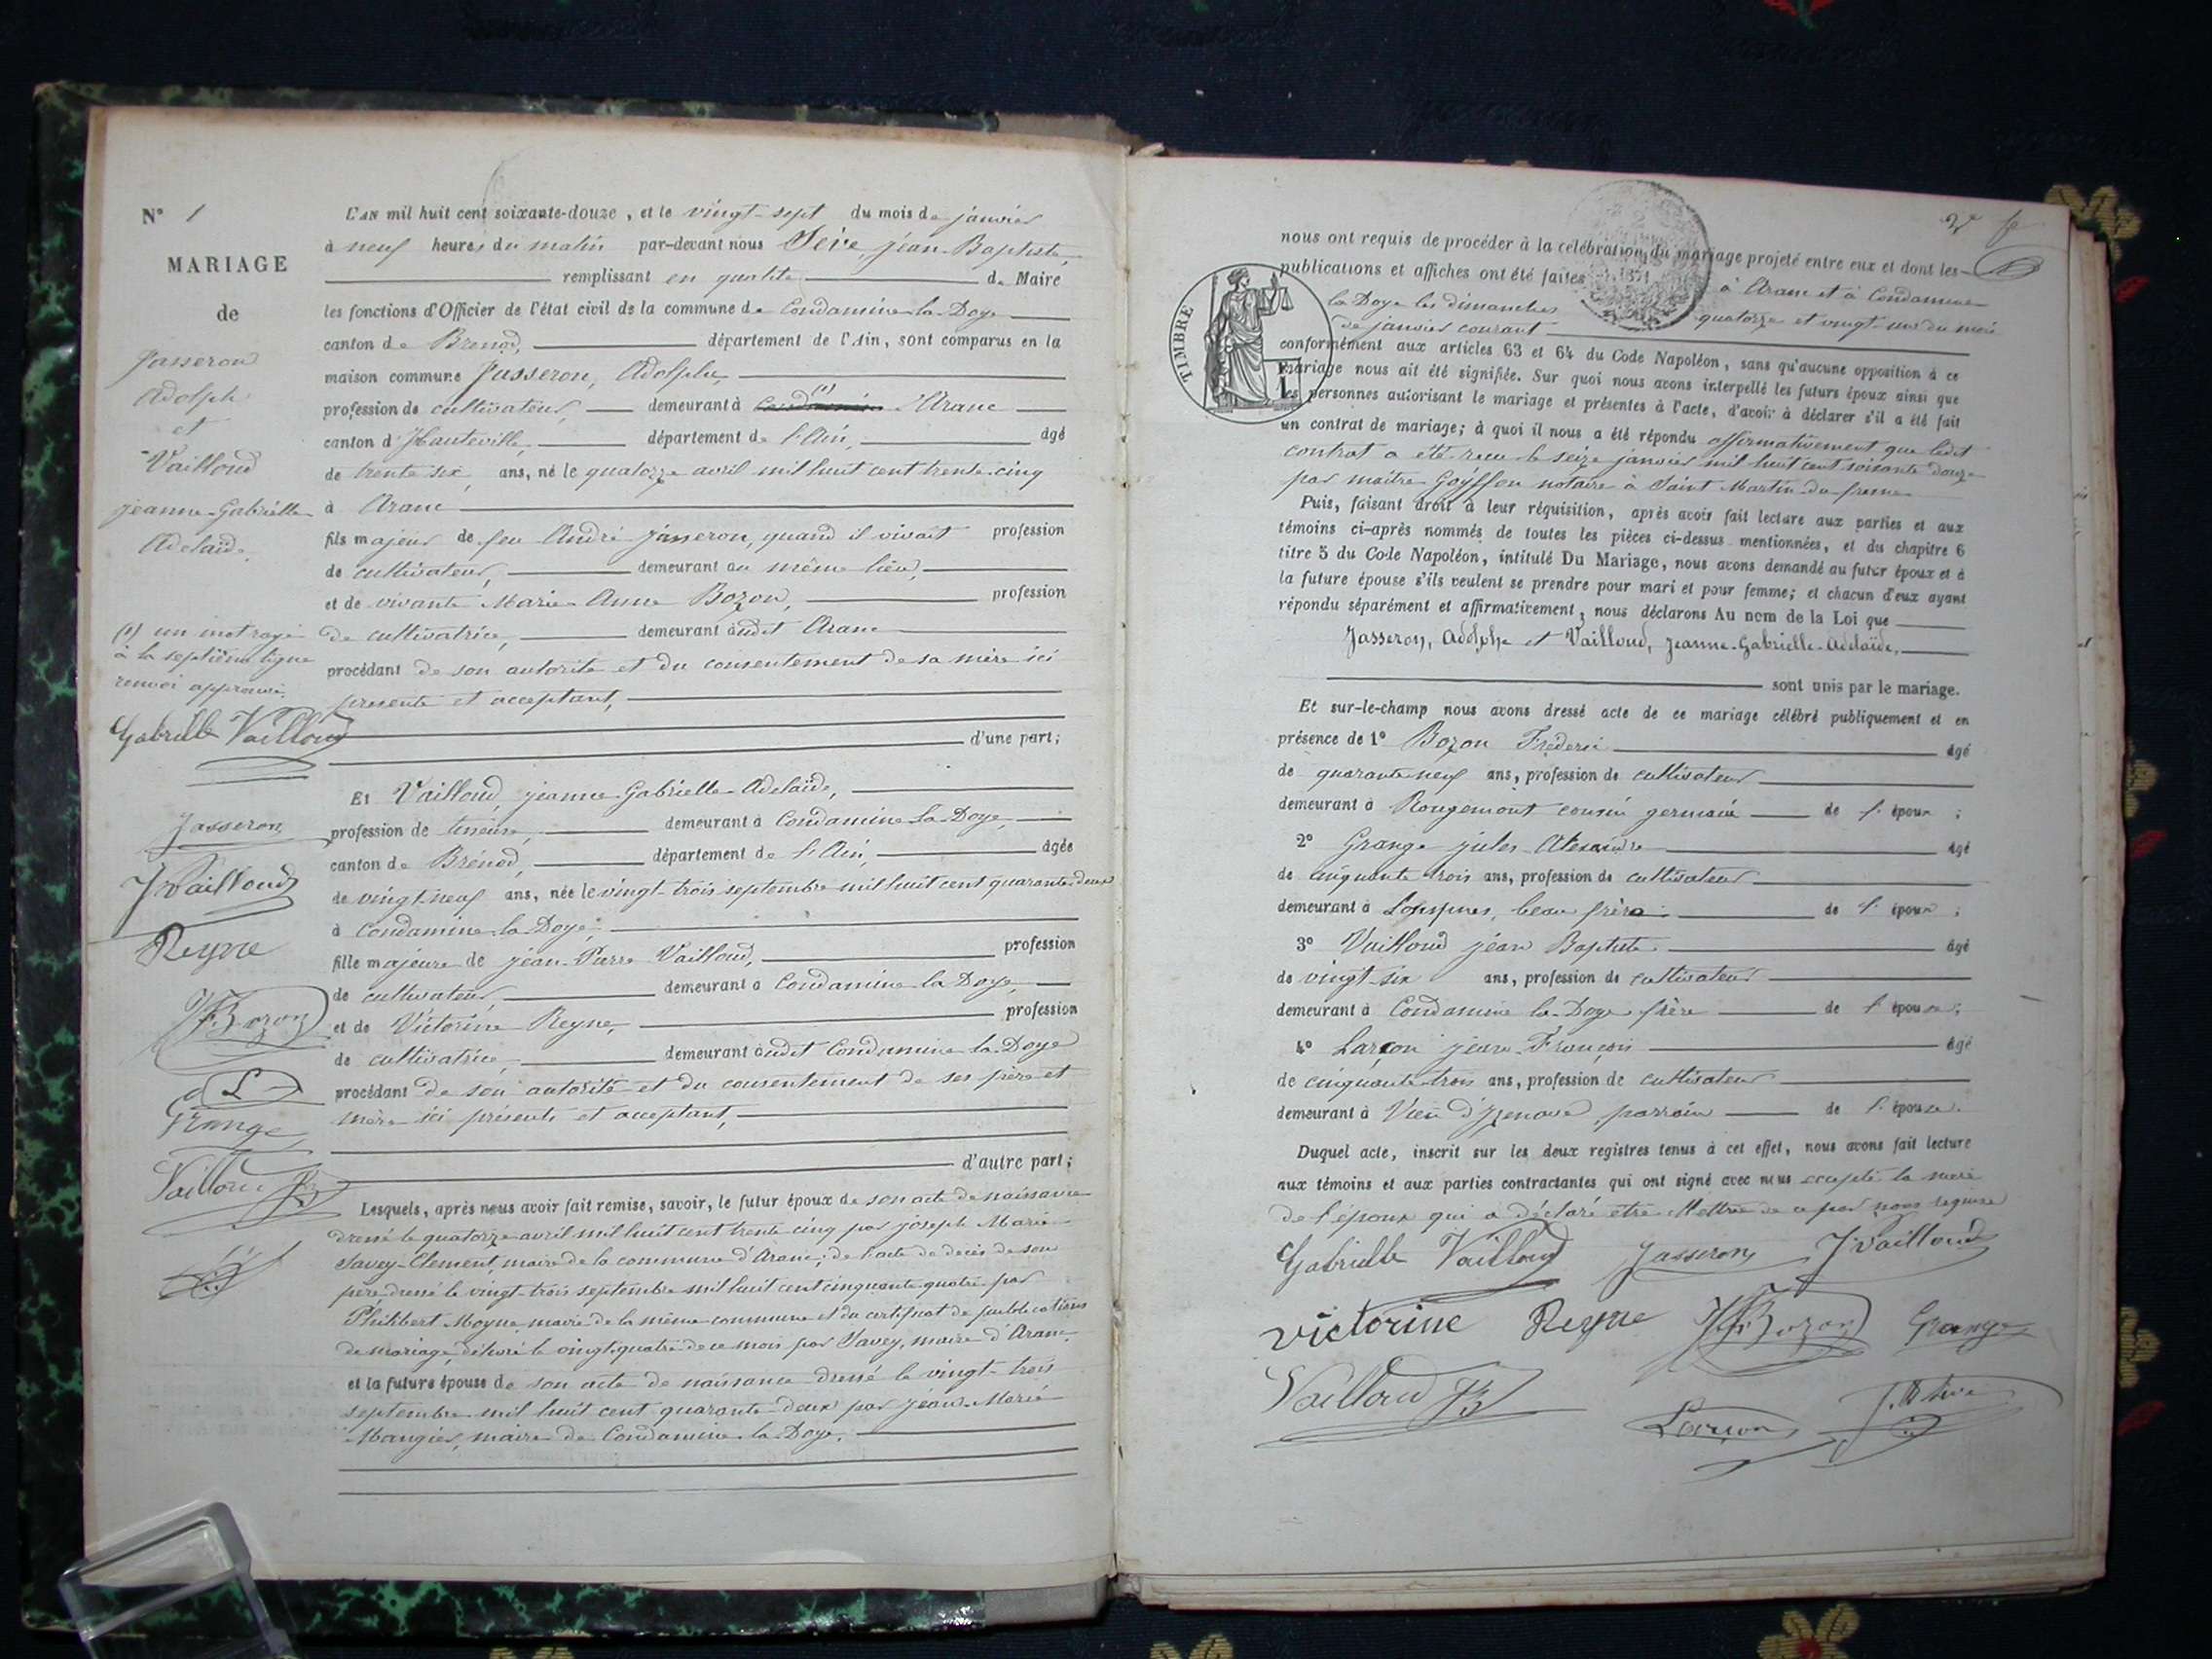 N° 1
MARIAGE
de
Jasseron
Adolphe
et
Vailloud
Jeanne-Gabrielle
Adelaïde.
(1) un mot rayé
à la septième ligne
renvoi approuvé.
Gabrielle Vailloud
Jasseron
J Vailloud
Reyne
Bozon
Grange
Vailloud JB
L'AN mil huit cent soixante-douze, et le vingt-sept du mois de janvier
à neuf heures du matin par-devant nous Sève, jean-Baptiste,
remplissant en qualité de Maire
les fonctions d'Officier de l'état civil de la commune de Condamine-la-Doye
canton de Brenod, département de l'Ain, sont comparus en la
maison commune Jasseron, Adolphe,
profession de cultivateur, demeurant à (1) d'Aranc
canton d'Hauteville, département de l'Ain, âgé
de trente six ans, né le quatorze avril mil huit cent trente-cinq
à Aranc
fils majeur de feu André Jasseron, quand il vivait profession
de cultivateur, demeurant au même lieu,
et de vivante Marie-Anne Bozon, profession
de cultivatrice, demeurant audit Aranc
procédant de son autorité et du consentement de sa mère ici
présente et acceptant,
d'une part;
Et Vailloud, jeanne-Gabrielle-Adelaïde,
profession de demeurant à Condamine-la-Doye,
canton de Brénod, département de l'Ain, âgée
de vingt-neuf ans, née le vingt-trois septembre mil huit cent quarante-deux
à Condamine-la-Doye;
fille majeure de jean-Pierre Vailloud, profession
de cultivateur, demeurant à Condamine-la-Doye,
et de Victorine Reyne, profession
de cultivatrice, demeurant audit Condamine-la-Doye
procédant de son autorité et du consentement de ses père et
mère ici présents et acceptant,
d'autre part;
Lesquels, après nous avoir fait remise, savoir, le futur époux de son acte de naissance
dressé le quatorze avril mil huit cent trente cinq par joseph Marie
Savey-Clement, maire de la commune d'Aranc; de l'acte de décès de son
père, dressé le vingt-trois septembre mil huit cent cinquante-quatre par
Philibert Moyne, maire de la même commune et du certificat de publications
de mariage, délivré le vingt-quatre de ce mois par Savey, maire d'Aranc,
et la future épouse de son acte de naissance dressé le vingt-trois
septembre mil huit cent quarante-deux par jean-Marie
Mangier, maire de Condamine-la-Doye.
TIMBRE
nous ont requis de procéder à la célébration du mariage projeté entre eux et dont les
publications et affiches ont été faites à Aranc et à Condamine
la Doye les dimanches quatorze et vingt-un du mois
de janvier courant
conformément aux articles 63 et 64 du Code Napoléon, sans qu'aucune opposition à ce
mariage nous ait été signifiée. Sur quoi nous avons interpellé les futurs époux ainsi que
les personnes autorisant le mariage et présentes à l'acte, d'avoir à déclarer s'il a été fait
un contrat de mariage; à quoi il nous a été répondu affirmativement que ledit
contrat a été reçu le seize janvier mil huit cent soixante douze
par maître Goyffon notaire à Saint Martin-du-fresne
Puis, faisant droit à leur réquisition, après avoir fait lecture aux parties et aux
témoins ci-après nommés de toutes les pièces ci-dessus mentionnées, et du chapitre 6
titre 5 du Code Napoléon, intitulé Du Mariage, nous avons demandé au futur époux et à
la future épouse s'ils veulent se prendre pour mari et pour femme; et chacun d'eux ayant
répondu séparément et affirmativement, nous déclarons Au nom de la Loi que
Jasseron, Adolphe et Vailloud, Jeanne-Gabrielle-Adelaïde,
sont unis par le mariage.
Et sur-le-champ nous avons dressé acte de ce mariage célébré publiquement et en
présence de 1° Bozon Fréderic âgé
de quarante-neuf ans, profession de cultivateur
demeurant à Rougemont cousin germain de l'époux ;
2° Grange jules Alexandre âgé
de cinquante trois ans, profession de cultivateur
demeurant à beau frère de l'époux ;
3° Vailloud jean Baptiste âgé
de vingt-six ans, profession de cultivateur
demeurant à Condamine la-Doye frère de l'épouse;
4° Larçon jean-François âgé
de cinquante trois ans, profession de cultivateur
demeurant à Vieu d'Izenave, parrain de l'épouse.
Duquel acte, inscrit sur les deux registres tenus à cet effet, nous avons fait lecture
aux témoins et aux parties contractantes qui ont signé avec nous excepté la mère
de l'époux qui a déclaré être illettrée de ce par nous requise
Gabrielle Vailloud Jasseron J Vailloud
Victorine Reyne Bozon Grange
Vailloud JB Larçon J.B Sève